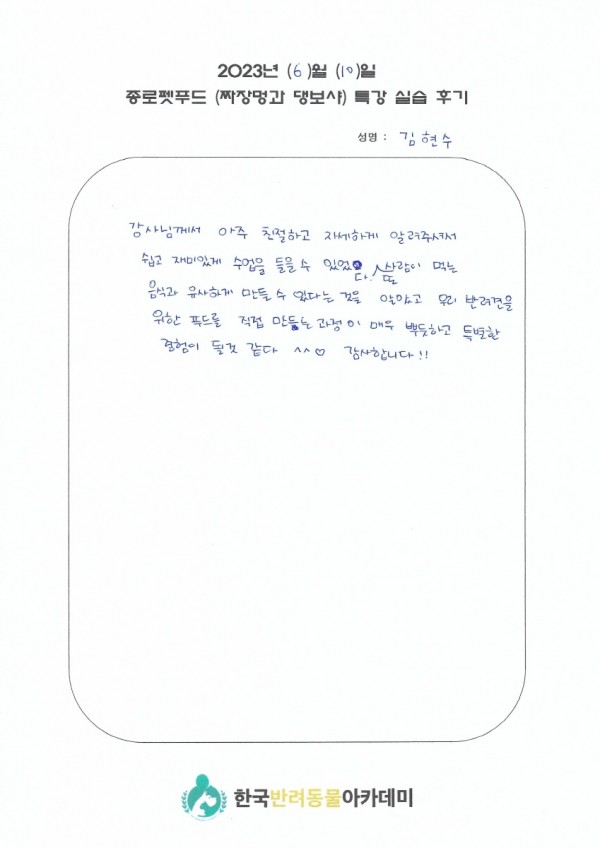 2023년 (6)월 (10)일
종로펫푸드 (짜장멍과 댕보샤) 특강 실습 후기
성명 : 김현수
강사님께서 아주 친절하고 자세하게 알려주셔서
쉽고 재미있게 수업을 들을 수 있었다. 또 사람이 먹는
음식과 유사하게 만들 수 있다는 것을 알았고 우리 반려견을
위한 푸드를 직접 만드는 과정이 매우 뿌듯하고 특별한
경험이 될것 같다 ^^♡ 감사합니다!!
한국반려동물아카데미